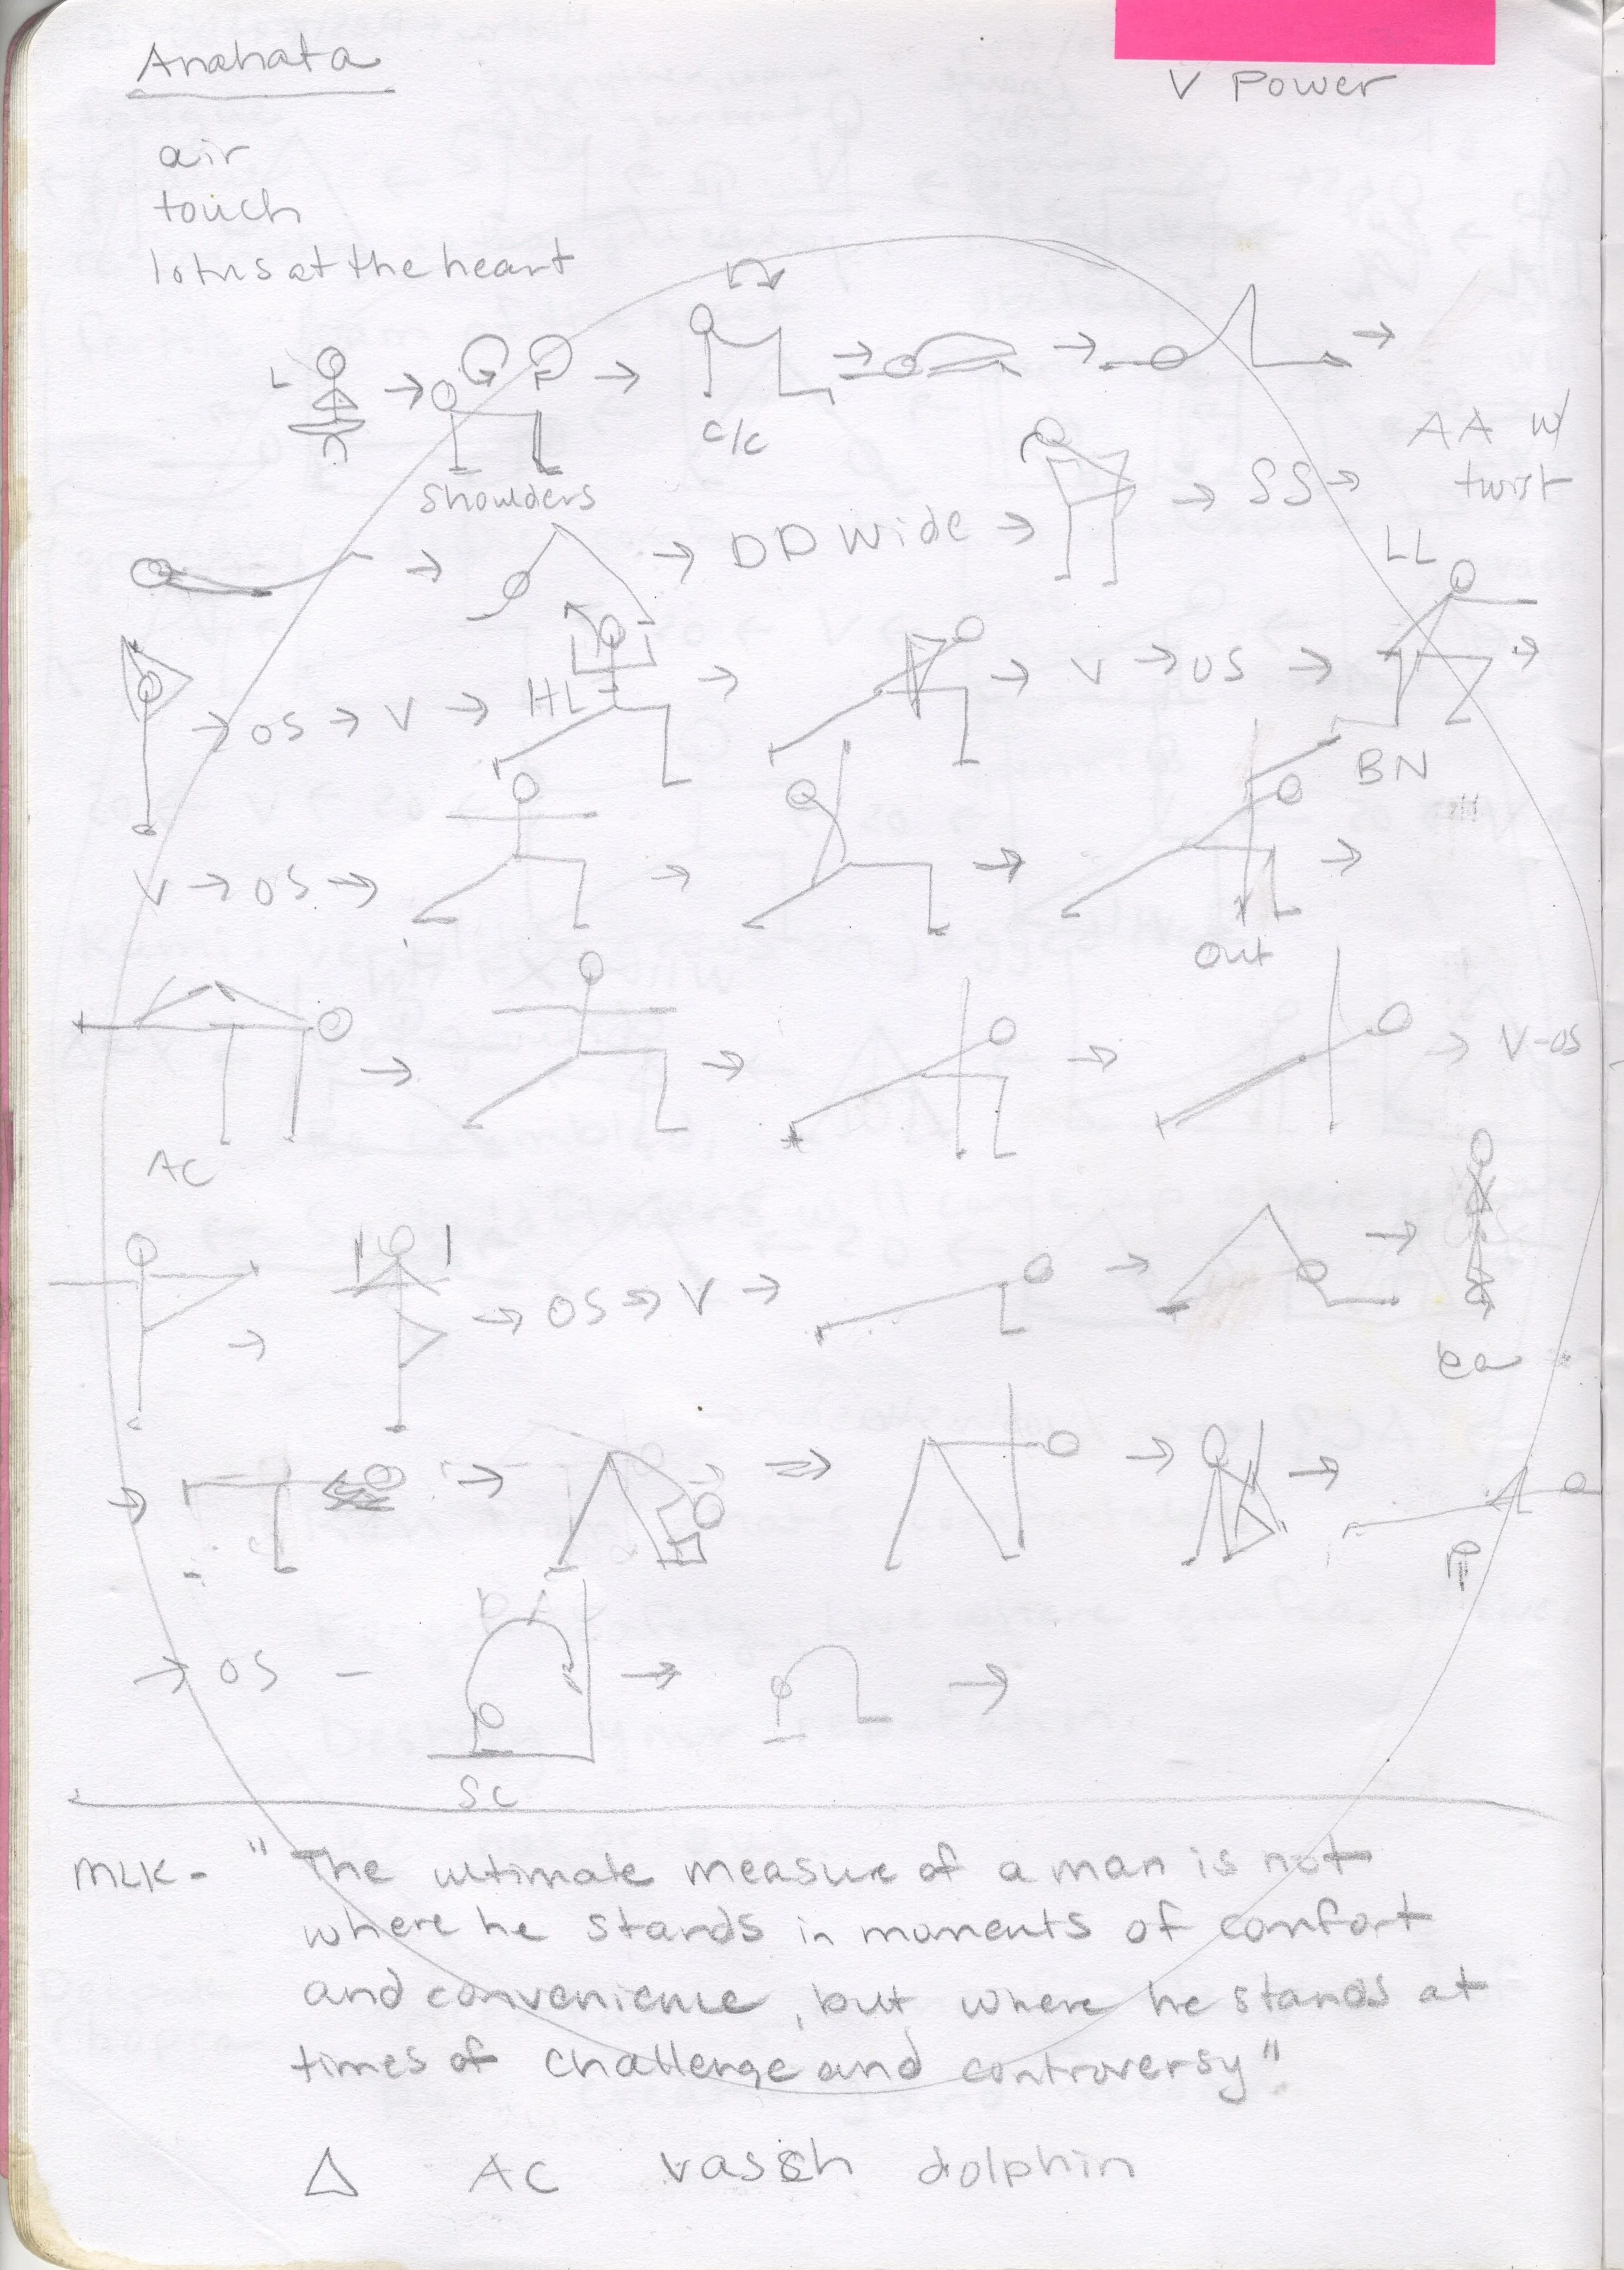 Anahata
V Power
air
touch
lotus at the heart
L
shoulders
c/c
AA w/
twist
DD wide
SS
LL
OS V HL
V OS
BN
V OS
out
V-OS
AC
OS V
OS
SC
MLK - "The ultimate measure of a man is not
where he stands in moments of comfort
and convenience, but where he stands at
times of challenge and controversy"
AC vassh dolphin